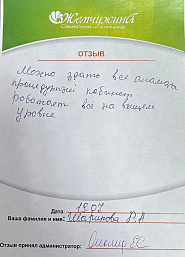 Жемчужина
ОТЗЫВ
Можно здать все анализы
процедурный кабинет
работает всё на высшем
уровне
Дата: 18.07
Ваша фамилия и имя: Шарипова Р.А
Отзыв принял администратор: